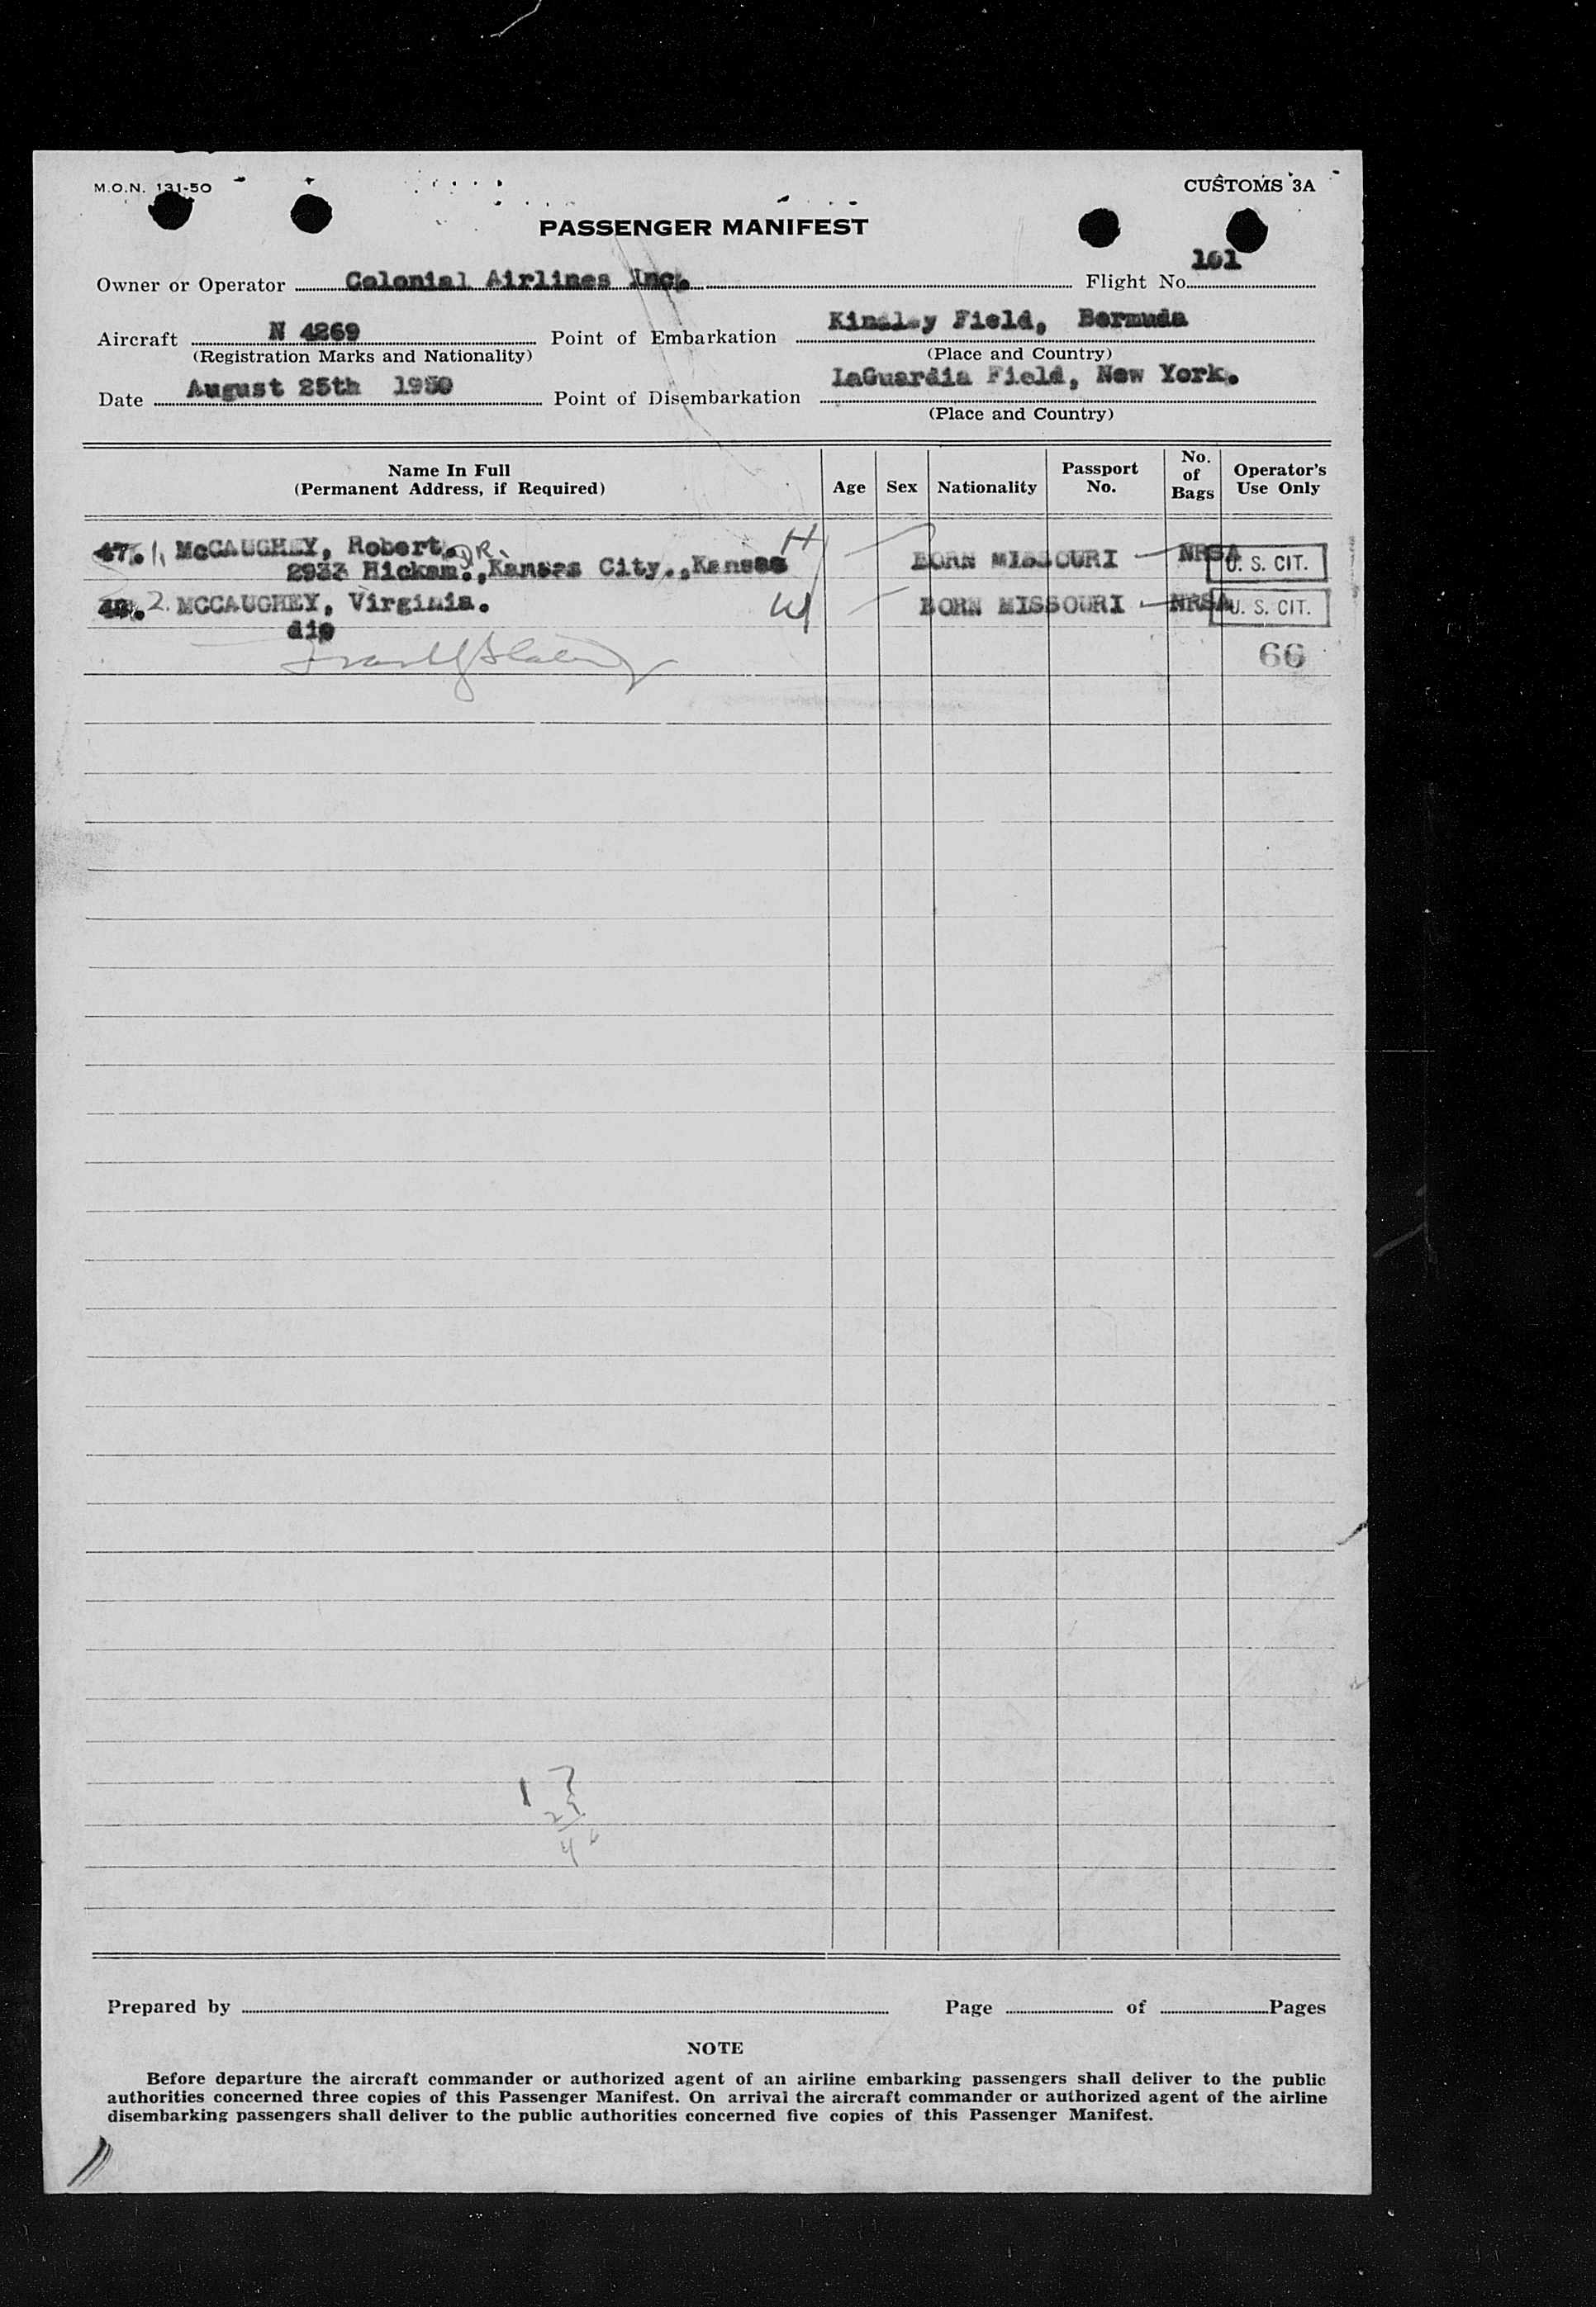 M.O.N. 131-50
CUSTOMS 3A
PASSENGER MANIFEST
Owner or Operator Colonial Airlines Inc. Flight No. 101
Aircraft N 4269 Point of Embarkation Kindley Field, Bermuda
(Registration Marks and Nationality) (Place and Country)
Date August 25th 1950 Point of Disembarkation LaGuardia Field, New York.
(Place and Country)
Name In Full (Permanent Address, if Required) Age Sex Nationality Passport No. No. of Bags Operator's Use Only
47. 1. McCAUGHEY, Robert. DR. H BORN MISSOURI NRSA U. S. CIT.
2933 Hickam.,Kansas City.,Kansas
48. 2. MCCAUGHEY, Virginia. W BORN MISSOURI NRSA U. S. CIT.
66
1 7
Prepared by Page of Pages
NOTE
Before departure the aircraft commander or authorized agent of an airline embarking passengers shall deliver to the public
authorities concerned three copies of this Passenger Manifest. On arrival the aircraft commander or authorized agent of the airline
disembarking passengers shall deliver to the public authorities concerned five copies of this Passenger Manifest.